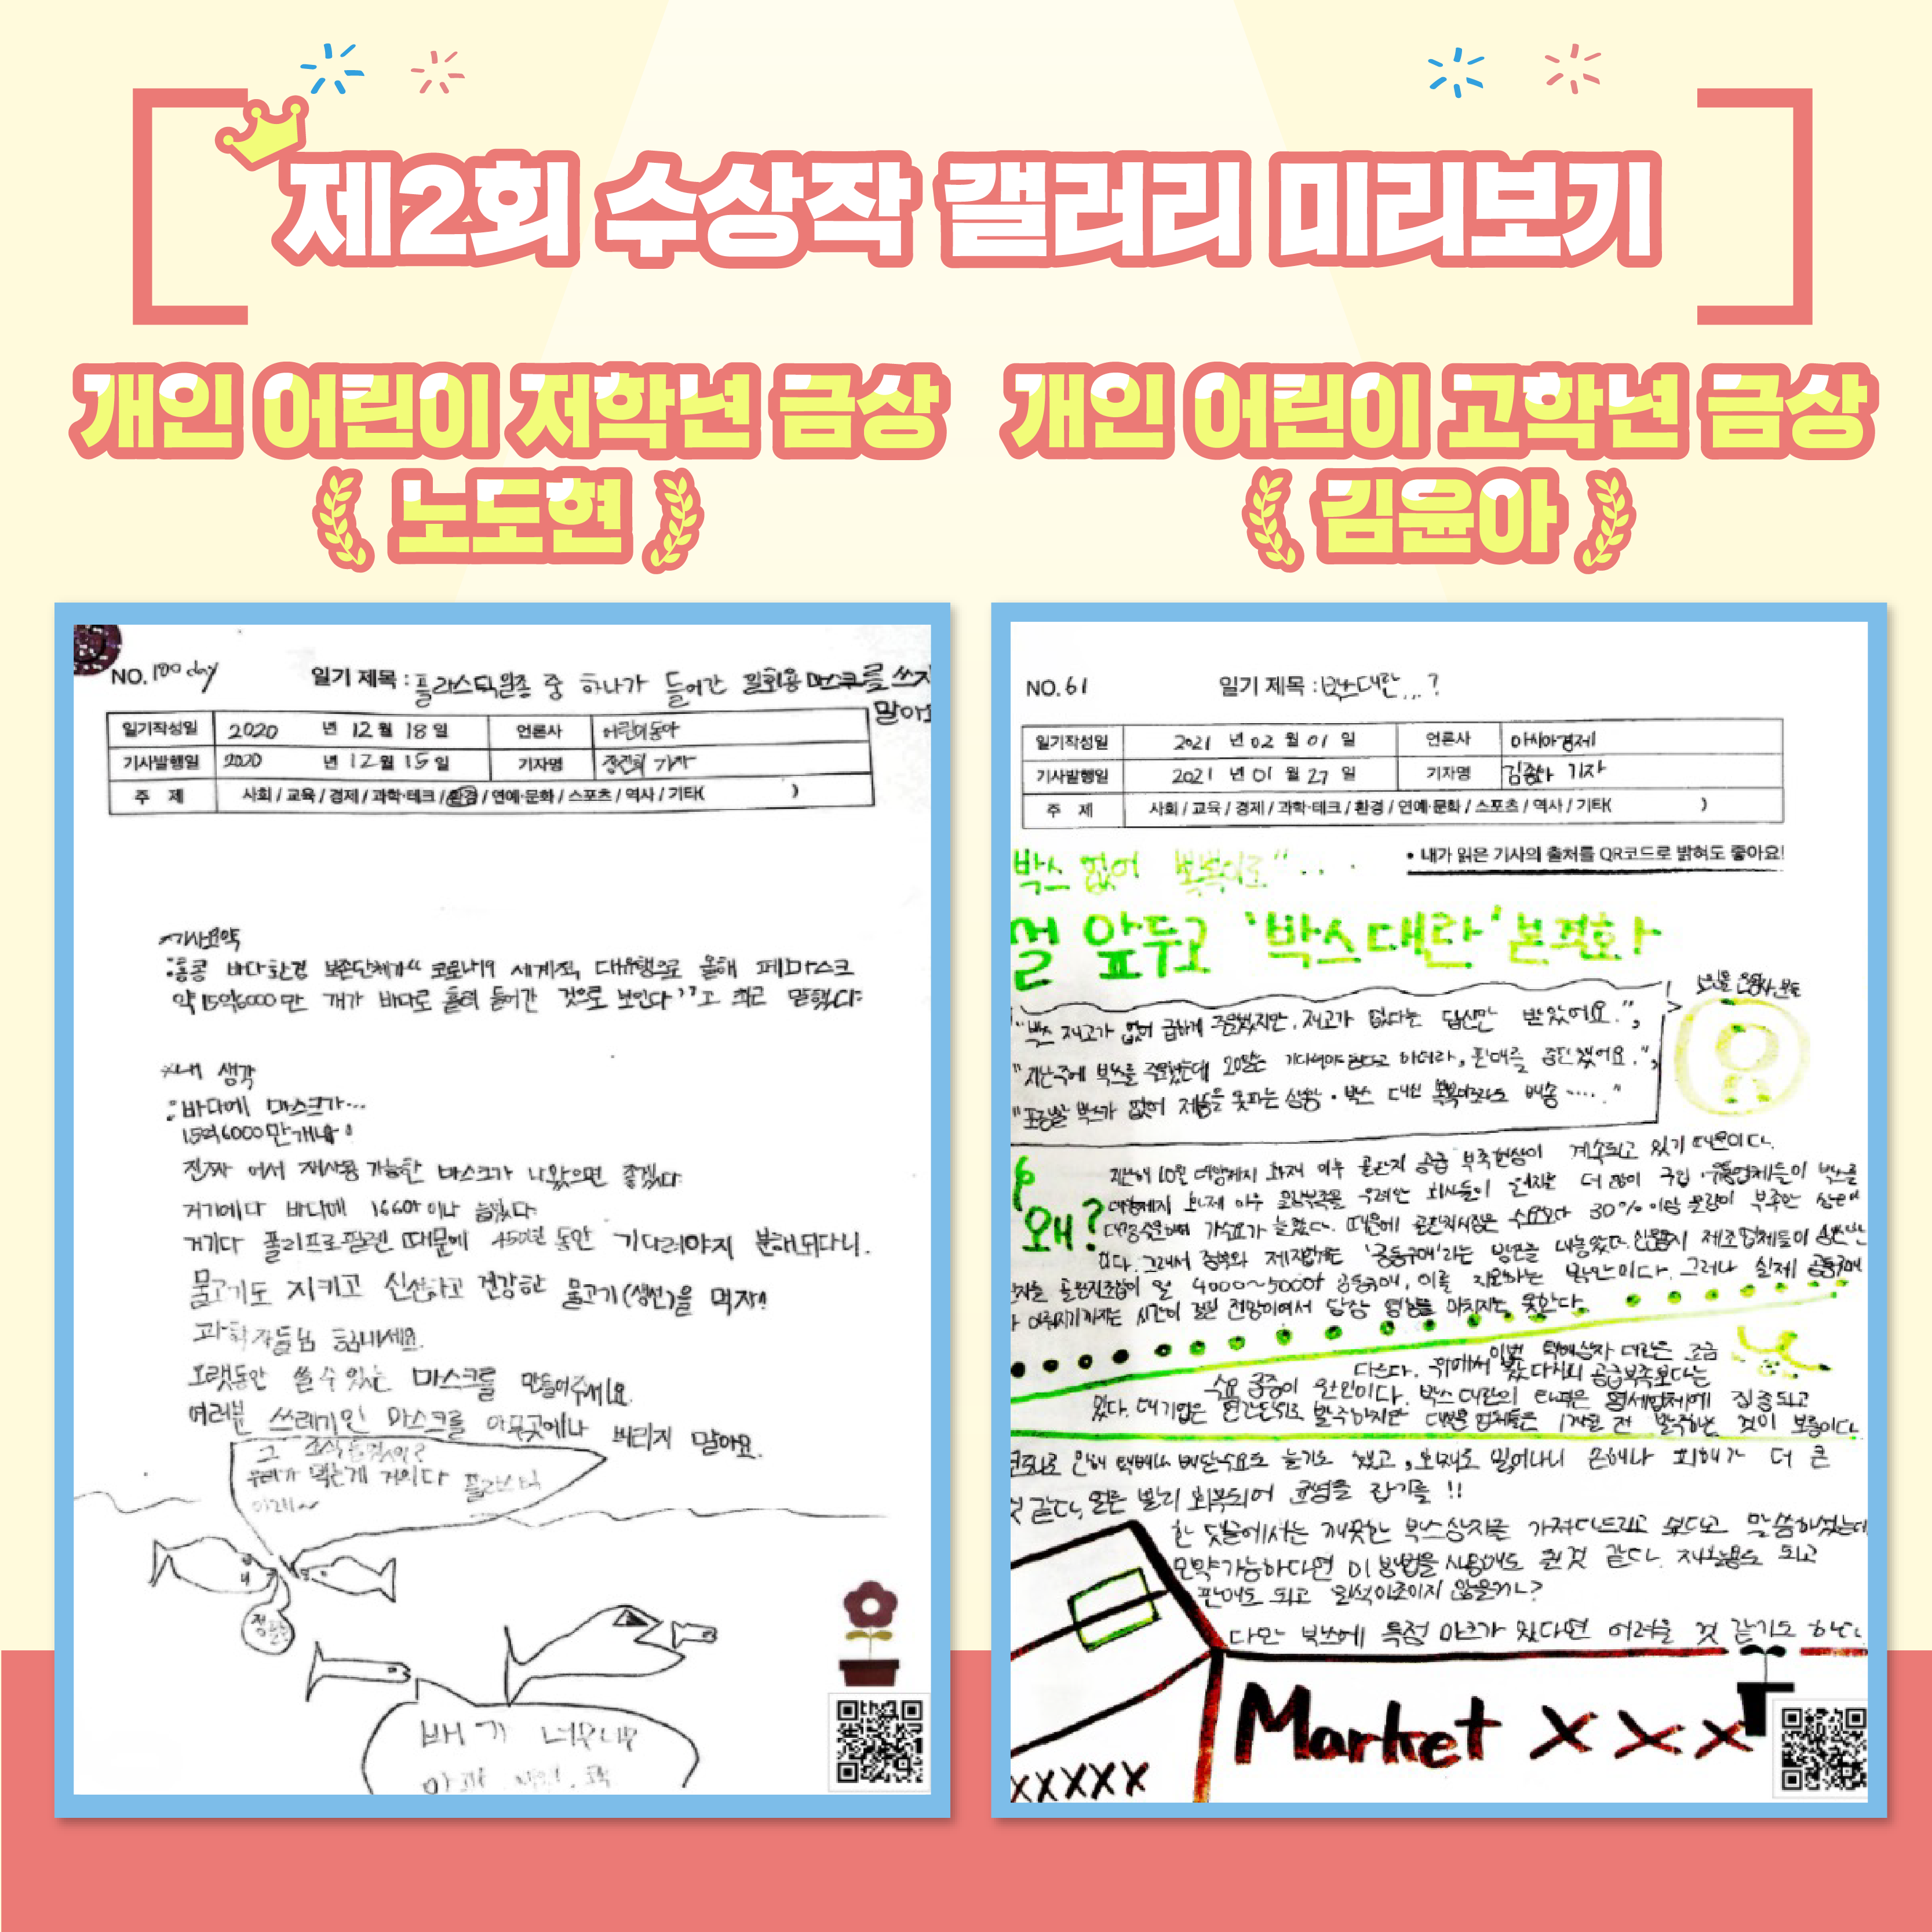 제2회 수상작 갤러리 미리보기
개인 어린이 저학년 금상
노도현
개인 어린이 고학년 금상
김윤아
NO. 100 day
일기 제목 : 플라스틱 원종 중 하나가 들어간 일회용 마스크를 쓰지
말아요
일기작성일 2020 년 12 월 18 일 언론사 어린이동아
기사발행일 2020 년 12 월 15 일 기자명 기자
주 제 사회 / 교육 / 경제 / 과학·테크 / 환경 / 연예·문화 / 스포츠 / 역사 / 기타( )
기사요약
:홍콩 바다환경 보존단체가 "코로나19 세계적 대유행으로 올해 폐마스크
약 15억6000만 개가 바다로 흘러 들어간 것으로 보인다"고 최근 말했다.
※내 생각
:바다에 마스크가...
15억6000만개나!
진짜 어서 재사용 가능한 마스크가 나왔으면 좋겠다.
거기에다 바다에 이나
거기다 폴리프로필렌 때문에 450년 동안 기다려야지 분해되다니.
물고기도 지키고 신선하고 건강한 물고기(생선)을 먹자!
과학자들님 힘내세요.
오랫동안 쓸 수 있는 마스크를 만들어주세요.
여러분 쓰레기인 마스크를 아무곳에나 버리지 말아요.
그 소식 들었어?
우리가 먹는게 거의다 플라스틱
이래~
배가 너무나
NO. 61
일기 제목 : 박스대란...?
일기작성일 2021 년 02 월 01 일 언론사 아시아경제
기사발행일 2021 년 01 월 27 일 기자명 기자
주 제 사회 / 교육 / 경제 / 과학·테크 / 환경 / 연예·문화 / 스포츠 / 역사 / 기타( )
• 내가 읽은 기사의 출처를 QR코드로 밝혀도 좋아요!
박스 없어 뽁뽁이로"...
설 앞두고 '박스대란' 본격화
"박스 재고가 없어 급하게 주문했지만, 재고가 없다는 답신만 받았어요.",
"지난주에 박스를 주문했는데 20일은 기다려야 한다고 하더라, 판매를 중단했어요.",
"포장할 박스가 없어 제품을 못파는 상황. 박스 대신 뽁뽁이로라도 배송....."
왜?
지난해 10월 대양제지 화재 이후 골판지 공급 부족현상이 계속되고 있기 때문이다.
대양제지 화재 이후 물량부족을 우려한 회사들이 더 많이 구입. 유통업체들이 박스를
가수요가 늘었다. 때문에 골판지시장은 수요보다 30% 이상 물량이 부족한
그래서 정부와 제지업계는 '공동구매'라는 방안을 내놓았다. 제조업체들이
골판지조합이 월 4000~5000t 공동구매, 이를 지원하는 방안이다. 그러나 실제 공동구매
이뤄지기까지는 시간이 걸릴 전망이여서 당장 영향을 미치지는 못한다.
이번 택배상자 대란은 조금
다르다. 위에서 봤다시피 공급부족보다는
수요 급증이 원인이다. 박스 대란의 타격은 영세업체에 집중되고
있다. 대기업은 연간단위로 발주하지만 대부분 업체들은 1개월 전 발주하는 것이 보통이다.
코로나로 인해 택배나 배달수요도 늘기도 했고, 화재도 일어나니 손해나 피해가 더 큰
것 같다. 얼른 빨리 회복되어 균형을 잡기를!!
한 댓글에서는 깨끗한 박스상자를 가져다드리고 싶다고 말씀하셨는데
만약 가능하다면 이 방법을 사용해도 될것 같다. 재활용도 되고
판매도 되고 일석이조이지 않을까?
다만 박스에 특정 마크가 있다면 어려울 것 같기도 하다.
Market XXX
XXXXX